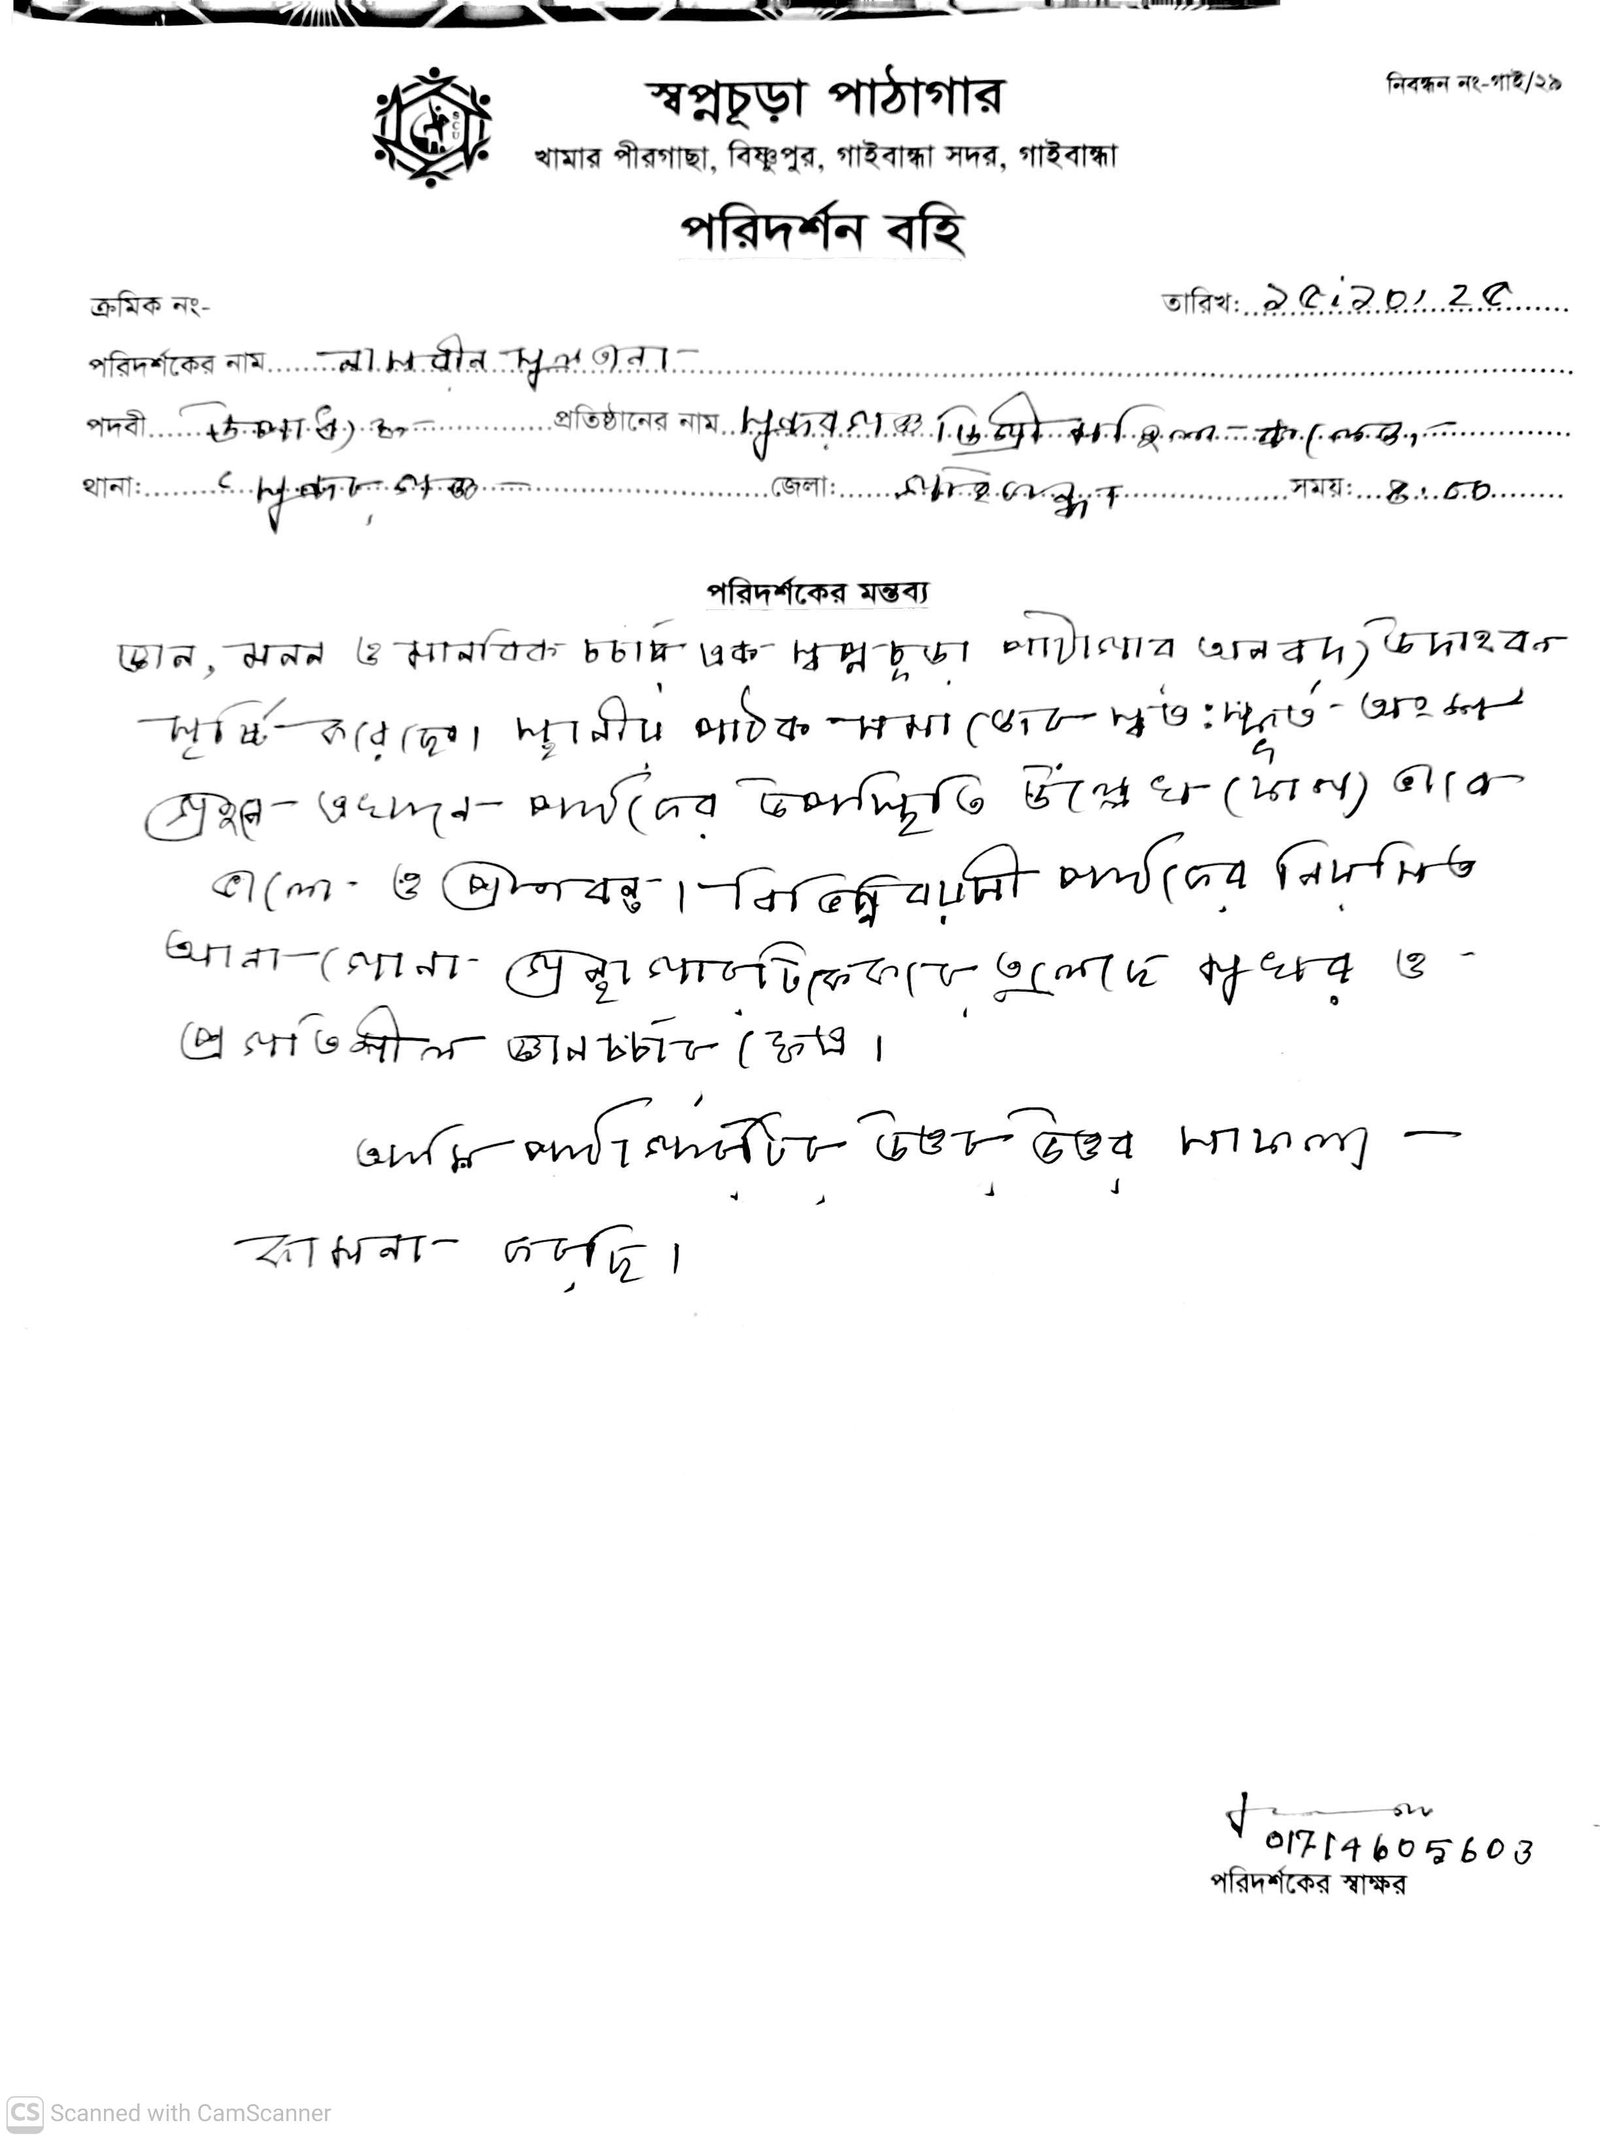 স্বপ্নচূড়া পাঠাগার
নিবন্ধন নং-গাই/২৯
খামার পীরগাছা, বিষ্ণুপুর, গাইবান্ধা সদর, গাইবান্ধা
পরিদর্শন বহি
ক্রমিক নং-
তারিখ: ১৫.১০.২৫
পরিদর্শকের নাম নাসরীন সুলতানা
পদবী উপাধ্যক্ষ প্রতিষ্ঠানের নাম সুন্দরগঞ্জ ডিগ্রী মহিলা কলেজ,
থানা: সুন্দরগঞ্জ জেলা: গাইবান্ধা সময়: ৪:০০
পরিদর্শকের মন্তব্য
জ্ঞান, মনন ও মানবিক চর্চায় এক স্বপ্নচূড়া পাঠাগার অনবদ্য উদাহরণ
সৃষ্টি করেছে। স্থানীয় পাঠক সমাজের স্বতঃস্ফূর্ত অংশ
গ্রহনে এখানে পাঠকের উপস্থিতি উল্লেখ যোগ্য ভাবে
ভালো ও প্রাণবন্ত। বিভিন্ন বয়সী পাঠকের নিয়মিত
আনা-গোনা গ্রন্থাগারটিকে করে তুলেছে মুখর ও
প্রগতিশীল জ্ঞানচর্চার ক্ষেত্র।
আমি পাঠাগারটির উত্তর উত্তর সাফল্য
কামনা করছি।
01714605603
পরিদর্শকের স্বাক্ষর
CS Scanned with CamScanner